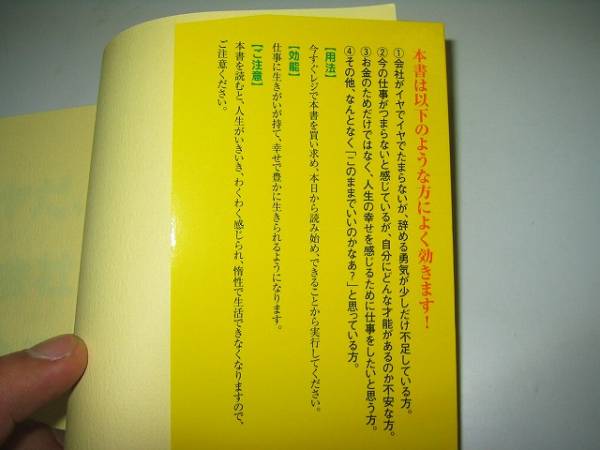 本書は以下のような方によく効きます!
①会社がイヤでイヤでたまらないが、辞める勇気が少しだけ不足している方。
②今の仕事がつまらないと感じているが、自分にどんな才能があるのか不安な方。
③お金のためだけではなく、人生の幸せを感じるために仕事をしたいと思う方。
④その他、なんとなく「このままでいいのかなあ?」と思っている方。
【用法】
今すぐレジで本書を買い求め、本日から読み始め、できることから実行してください。
【効能】
仕事に生きがいが持て、幸せで豊かに生きられるようになります。
【ご注意】
本書を読むと、人生がいきいき、わくわく感じられ、惰性で生活できなくなりますので、
ご注意ください。